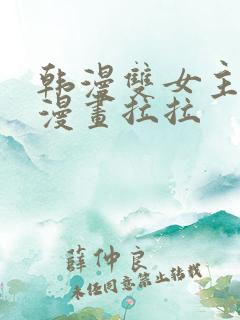 韩漫雙女主
漫畫拉拉
薛仲良
未经同意禁止转载